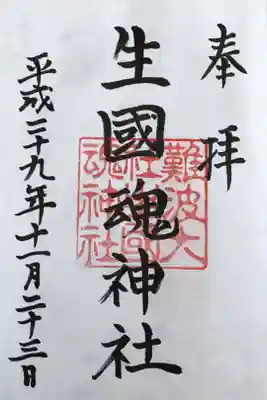 奉拝
生國魂神社
平成二十九年十一月二十三日
難波大社